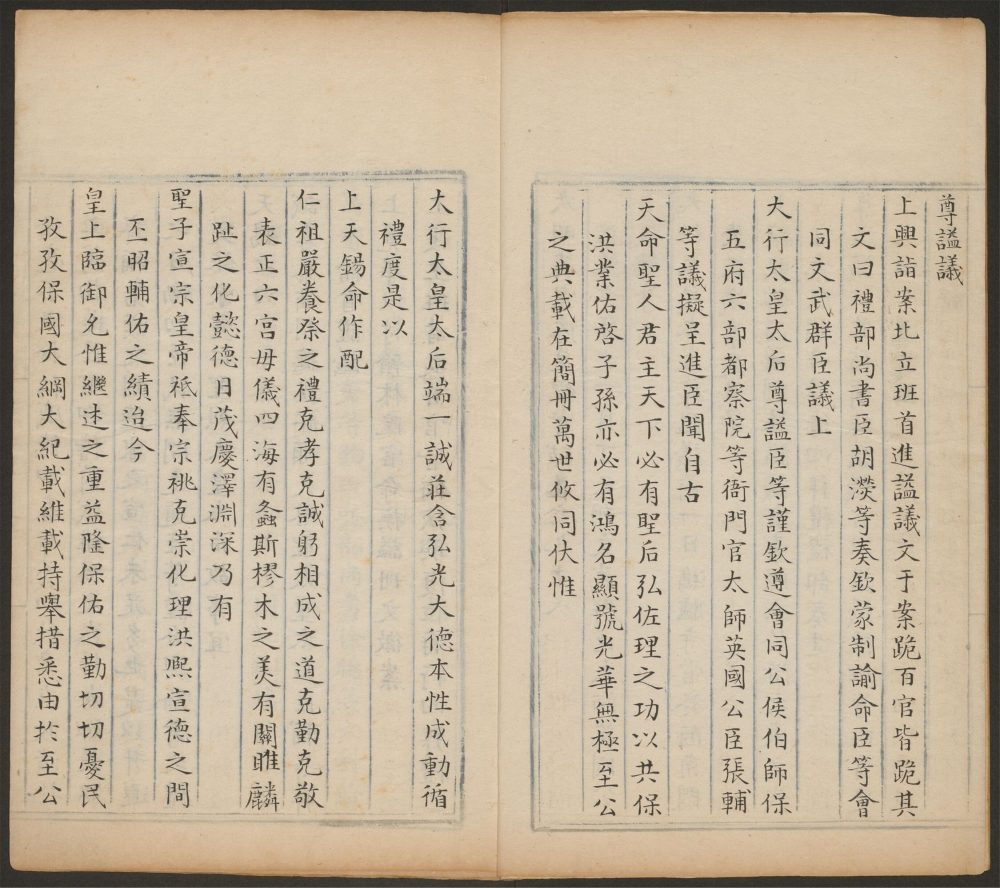 尊謚議
上興詣案北立班首進謚議文于案跪百官皆跪其
文曰禮部尚書臣胡濙等奏欽蒙制諭命臣等會
同文武群臣議上
大行太皇太后尊謚臣等謹欽遵會同公侯伯師保
五府六部都察院等衙門官太師英國公臣張輔
等議擬呈進臣聞自古
天命聖人君主天下必有聖后弘佐理之功以共保
洪業佑啓子孫亦必有鴻名顯號光華無極至公
之典載在簡冊萬世攸同伏惟
大行太皇太后端一誠莊含弘光大德本性成動循
禮度是以
上天錫命作配
仁祖嚴養祭之禮克孝克誠躬相成之道克勤克敬
表正六宮毋儀四海有螽斯樛木之美有關睢麟
趾之化懿德日茂慶澤淵深乃有
聖子宣宗皇帝祗奉宗祧克崇化理洪熙宣德之間
丕昭輔佑之績迨今
皇上臨御允惟繼述之重益隆保佑之勤切切憂民
孜孜保國大綱大紀載維載持舉措悉由於至公